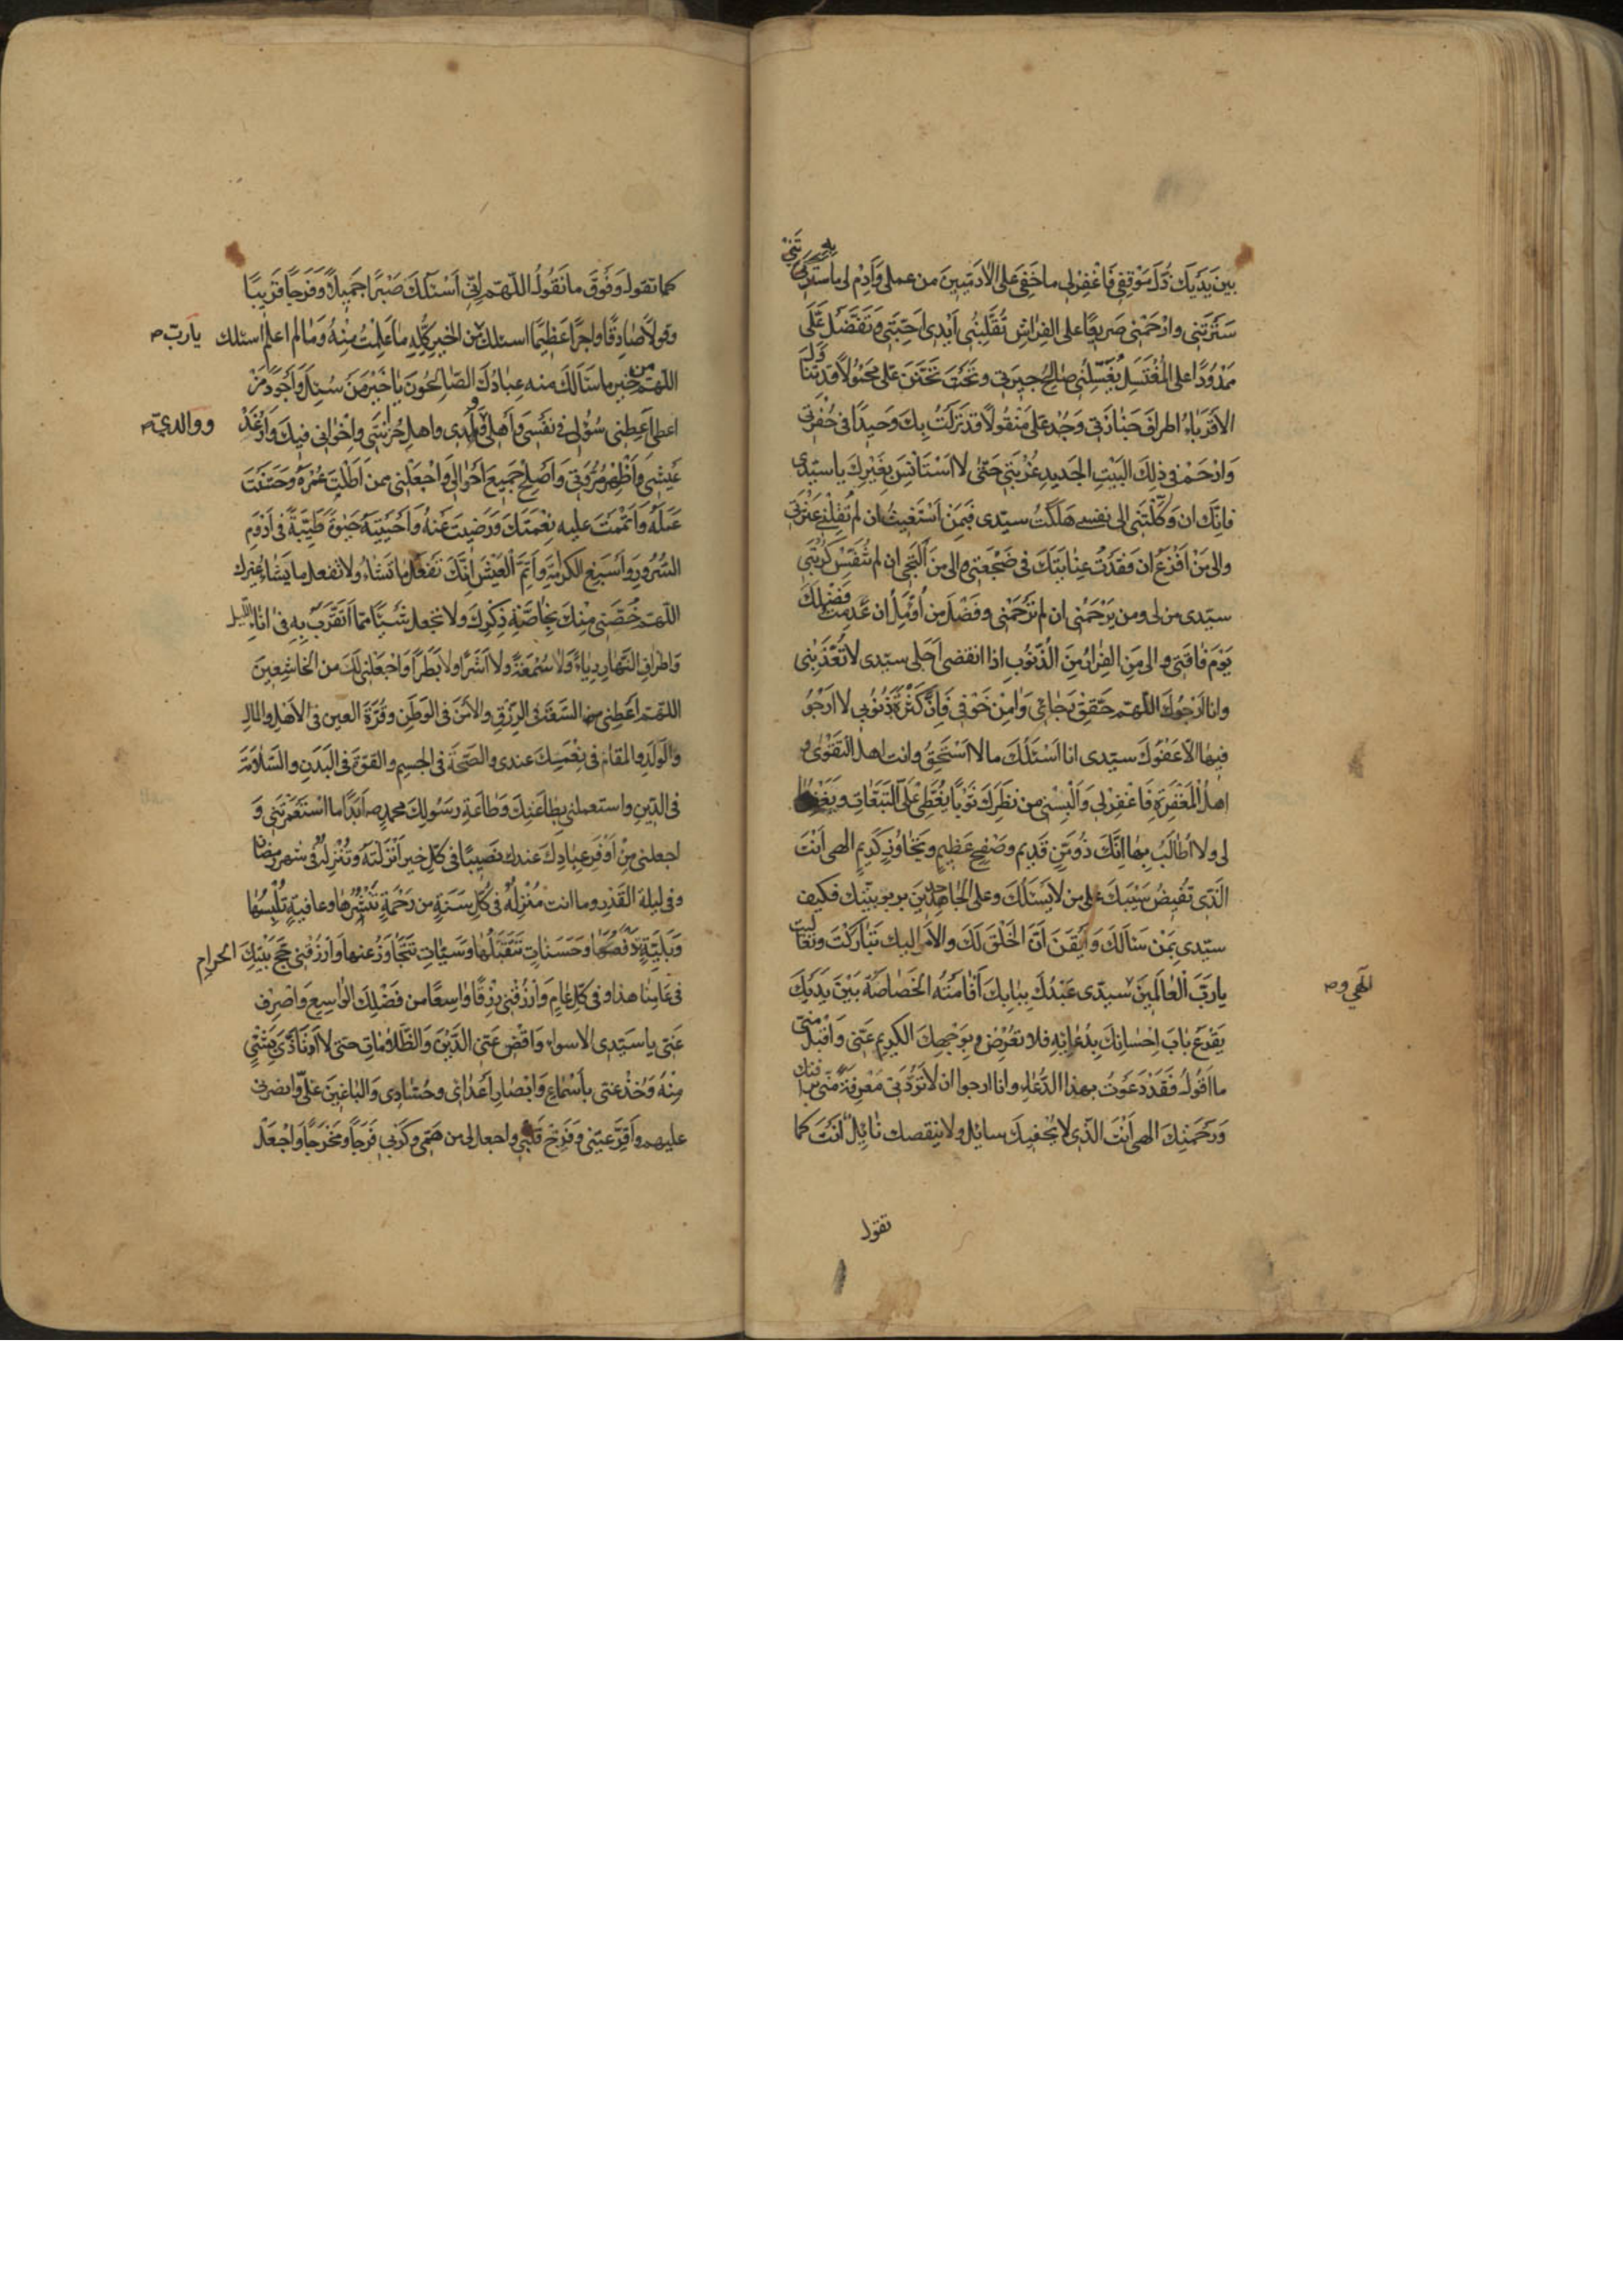 بين يَدَيكَ ذُلَّ مَوْقِفِي فَاغْفِرْلِي ما خَفِيَ عَلَى الآدَمِيّينَ من عملى وَاَدِمْ لى ما به
سَتَرْتَنِي وارْحَمْنى صَريعًا على الفِراشِ تُقَلِّبُنِي اَيْدى اَحِبَّتِي وَتَفَضَّلْ عَلَىَّ
مَمْدُودًا على المُغْتَسَلِ يُغَسِّلُنِي صَالِحُ جيرَتي وَتَحَنَّنْ عَلَىَّ محمُولًا قد تَناوَلَ
الاَقرِباءُ اطرافَ جَنازَتي وَجُدْ عَلَىَّ مَنْقُولًا قد نَزَلْتُ بِكَ وَحيدًا في حُفْرَتي
وَارْحَمْ في ذلِكَ البَيْتِ الجَديدِ غُرْبَتي حَتّى لا اَسْتَأنِسَ بِغَيْرِكَ يا سيّدى
فاِنّكَ ان وَكَلْتَنى الى نفسى هَلَكْتُ سيّدى فَبِمَنْ اَسْتَغيثُ ان لم تُقِلْنى عَثْرَتي
والى مَنْ اَفْزَعُ ان فَقَدْتُ عِنايَتَكَ فى ضَجْعَتى والى مَنْ اَلْتَجِى ان لم تُنَفِّسْ كُرْبَتي
سيّدى من لى ومن يَرْحَمُنى ان لم تَرْحَمْنى وفَضْلَ من اُؤَمِّلُ ان عَدِمْتُ فَضْلَكَ
يَوْمَ فاقَتي والى مَنِ الفِرارُ مِنَ الذُّنوبِ اذا انقضى اَجَلى سيّدى لا تُعَذِّبْنى
وانا اَرْجُوكَ اللّهمّ حَقِّقْ رَجائي وَامِنْ خَوْفي فَاِنَّ كَثْرَةَ ذُنُوبي لا اَرْجُو
فيها الّا عَفْوَكَ سيّدى انا اَسْئَلُكَ ما لا اَسْتَحِقُّ وانت اهل التَّقْوى و
اهلُ المَغْفِرَةِ فَاغْفِرْلى وَاَلْبِسْنى من نَظَرِكَ ثَوْبًا يُغَطِّي عَلَىَّ التَّبِعاتِ وتَغْفِرُها
لى ولا اُطالَبُ بها اِنَّكَ ذُو مَنٍّ قَديم وصَفْحٍ عَظيمٍ وتَجاوُزٍ كَريمٍ الهى اَنْتَ
الَّذى تُفيضُ سَيْبَكَ على من لا يَسْئَلُكَ وعلى الجاحدينَ بربوبيّتك فكيف
سيّدى بِمَنْ سَئَلَكَ وَاَيْقَنَ اَنَّ الخَلْقَ لَكَ والاَمر اليك تَبارَكْتَ وتَعالَيْت
يا رَبَّ الْعالَمينَ سيّدى عَبْدُكَ بِبابِكَ اَقامَتْهُ الخَصاصَةُ بَيْنَ يَدَيْكَ
الهى و صح
يَقْرَعُ بابَ اِحْسانِكَ بِدُعائِهِ فلا تُعْرِضْ بِوَجْهِكَ الكريم عَنّى وَاقْبَلْ مِنّى
ما اَقُولُ فَقَدْ دَعَوْتُ بهذا الدُّعاءِ وانا ارجوا ان لا تَرُدَّنى مَعْرِفَةً منّى برأفتك
وَرَحْمَتِكَ الهى اَنْتَ الّذى لا يُحْفيكَ سائِل ولا ينقصك نائِلٌ اَنْتَ كما
تقول
كما تقول وَفَوْقَ ما نَقُولُ اللّهمّ اِنّى اَسْئَلُكَ صَبْرًا جَميلًا وَفَرَجًا قَريبًا
وقولًا صادِقًا واجرًا عَظيمًا اسئلك من الخيرِ كُلِّهِ ما عَلِمْتُ مِنْهُ وَما لم اعلم اسئلك
يا رَبّ صح
اللّهمّ من خير ما سَئَلَكَ منه عِبادُكَ الصّالِحُونَ يا خَيْرَ مَنْ سُئِلَ وَاَجْوَدَ مَنْ
اعطى اَعْطِنى سُؤْلى فى نَفْسى وَاَهْلى وَوَلَدى واهلِ حُزانَتي وَاِخْوانى فيكَ وَاَرْغِدْ
ووالديّ صح
عَيْشى وَاَظْهِرْ مُرُوَّتي وَاَصْلِحْ جَميعَ اَحْوالى وَاجْعَلْنى ممن اَطَلْتَ عُمْرَهُ وَحَسَّنْتَ
عَمَلَهُ وَاَتْمَمْتَ عليه نِعْمَتَكَ وَرَضيتَ عَنْهُ وَاَحْيَيْتَهُ حَيوةً طَيِّبَةً فى اَدْوَمِ
السُّرُورِ وَاَسْبَغِ الكرامَةِ وَاَتَمِّ الْعَيْشِ اِنَّكَ تَفْعَلُ ما تَشاءُ ولا تفعل ما يَشاءُ غيرك
اللّهمّ خُصَّنى مِنْكَ بِخاصَّةِ ذِكْرِكَ ولا تجعل شَيْئًا مِمّا اَتَقَرَّبُ بِهِ فى اناءِ اللّيل
وَاطرافِ النَّهارِ رِياءً وَلا سُمْعَةً ولا اَشَرًا ولا بَطَرًا وَاجْعَلْنى لَكَ من الخاشِعينَ
اللّهمّ اَعْطِنى السَّعَةَ فى الرِّزْقِ والاَمْنَ فى الوَطَنِ وقُرَّةَ العين فى الاَهْلِ والمالِ
والوَلَدِ والمقامَ فى نِعَمِكَ عندى والصّحّةَ فى الجسم والقوّةَ فى البَدَنِ والسَّلامَةَ
فى الدّينِ واستعملنى بِطاعَتِكَ وَطاعَةِ رَسُولِكَ محمدٍ ص اَبَدًا ما اسْتَعْمَرْتَنى وَ
اجعلنى مِنْ اَوْفَرِ عِبادِكَ عندك نَصيبًا فى كلّ خير اَنْزَلْتَهُ وَتُنْزِلُهُ فى شهر رمضان
وفى ليلة القَدْرِ وما انت مُنْزِلُهُ فى كُلِّ سَنَةٍ من رَحْمَةٍ تَنْشُرُها وعافيةٍ تُلْبِسُها
وَبَلِيَّةٍ تَدْفَعُها وحَسَناتٍ تَتَقَبَّلُها وَسَيّئاتٍ تَتَجاوَزُ عنها وَارْزُقْنى حَجَّ بَيْتِكَ الحرامِ
فى عامِنا هذا و فى كلّ عامٍ وَارْزُقْنى رِزْقًا واسِعًا من فَضْلِكَ الواسِعِ وَاصْرِف
عَنّى يا سَيّدى الاسواء وَاقْضِ عَنّى الدَّيْنَ وَالظُّلاماتِ حتى لا اَتَاَذّى بِشَىْءٍ
مِنْهُ وَخُذْ عنى بأسْماعِ وَابْصارِ اَعْدائى وحُسّادى وَالباغينَ عَلَىَّ وانصرنى
عليهم وَاَقِرَّ عَيْنى وَفَرِّحْ قَلْبى واجعل لى من هَمّى وكَرْبى فَرَجًا ومَخْرَجًا وَاجْعَلْ